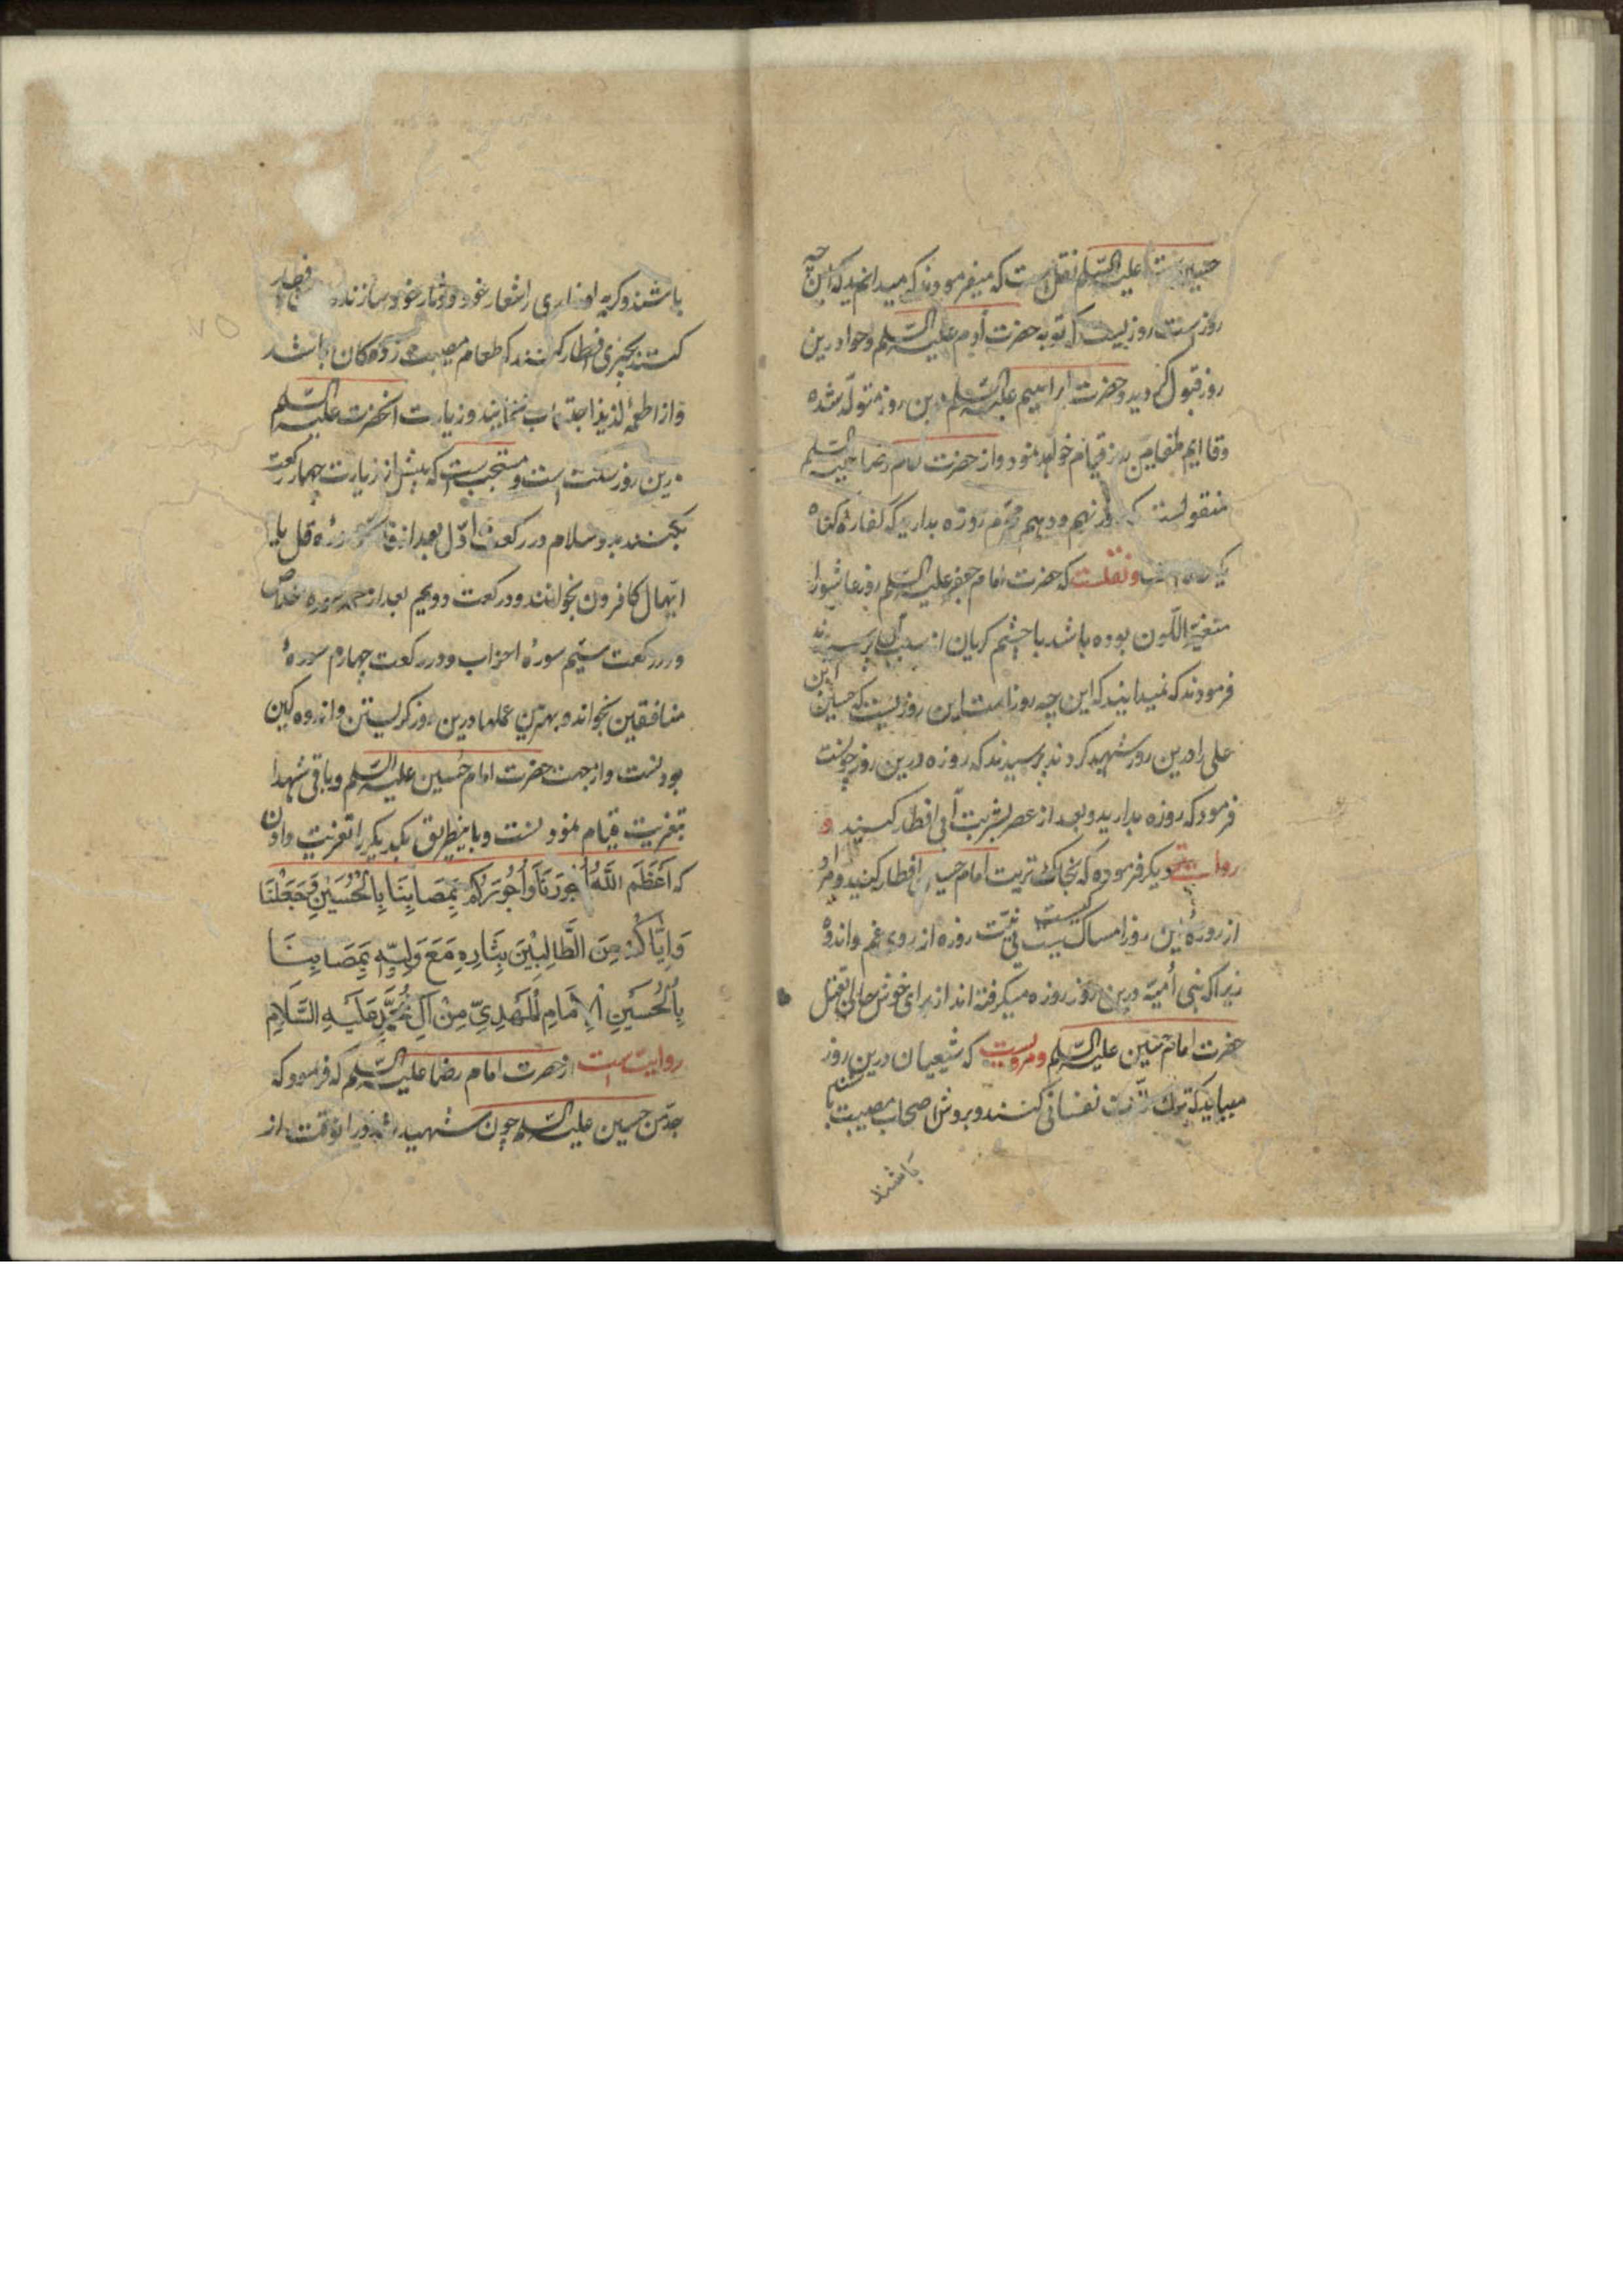 حسین است علیه السلم نقل است که میفرمودند که میدانید که این چه
روزست روزیست که توبه حضرت آدم علیه السلم و حوا درین
روز قبول کردید و حضرت ابراهیم علیه السلم درین روز متولد شده
و قایم علیه السلم
منقولست که روز نهم و دهم محرم روزه بدارید که کفارهٔ گناه
یکساله است و نقلست که حضرت امام جعفر علیه السلم روز عاشورا
متغیر اللون بوده باشد با چشم کریان از سبب آن پرسیدند
فرمودند که نمیدانید که این چه روز است این روزیست که حسین ابن
علی را درین روز شهید کردند پرسیدند که روزه درین روز چونست
فرمود که روزه بدارید و بعد از عصر بشربت آبی افطار کنید و
روایت دیکر فرموده که بخاک تربت امام حسین افطار کنید و مراد
از روزهٔ این روز امساک نیت روزه از روی غم و اندوه
زیرا که بنی أمیه درین روز روزه میکرفته اند از برای خوش حالی بقتل
حضرت امام حسین علیه السلم و مرویست که شیعیان درین روز
میباید که ترک لذت نفسانی کنند و بروش اصحاب مصیبت
باشند
باشند و کریه و زاری را شعار خود و دثار خود سازند
کنند بچیزی افطار کنند که طعام مصیبت زده کان باشد
و از اطعمهٔ لذیذ اجتناب نمایند و زیارت انحضرت علیه السلم
درین روز سنت است و مستحب است که پیش از زیارت چهار رکعت
بکنند بدو سلام در رکعت اول بعد از فاتحه سورهٔ قل یا
ایها الکافرون بخوانند و در رکعت دویم بعد از حمد سوره اخلاص
و در رکعت سیّم سورهٔ احزاب و در رکعت چهارم سورهٔ
منافقین بخواند و بهترین عملها درین روز کریستن و اندوه کین
بودنست و از جهت حضرت امام حسین علیه السلم و باقی شهدا
بتعزیت قیام نمودنست و باینطریق یکدیکر را تعزیت دادن
که أَعْظَمَ اللَّهُ أُجُورَنَا وَأُجُورَكُمْ بِمَصَابِنَا بِالْحُسَيْنِ وَجَعَلَنَا
وَإِيَّاكُمْ مِنَ الطَّالِبِيْنَ بِثَارِهِ مَعَ وَلِيِّهِ بِمَصَابِنَا
بِالْحُسَيْنِ الْإِمَامِ الْمَهْدِيِّ مِنْ آلِ مُحَمَّدٍ عَلَيْهِ السَّلَامِ
روایت است از حضرت امام رضا علیه السلم که فرمود که
جد من حسین علیه السلم چون شهید شد در انوقت از